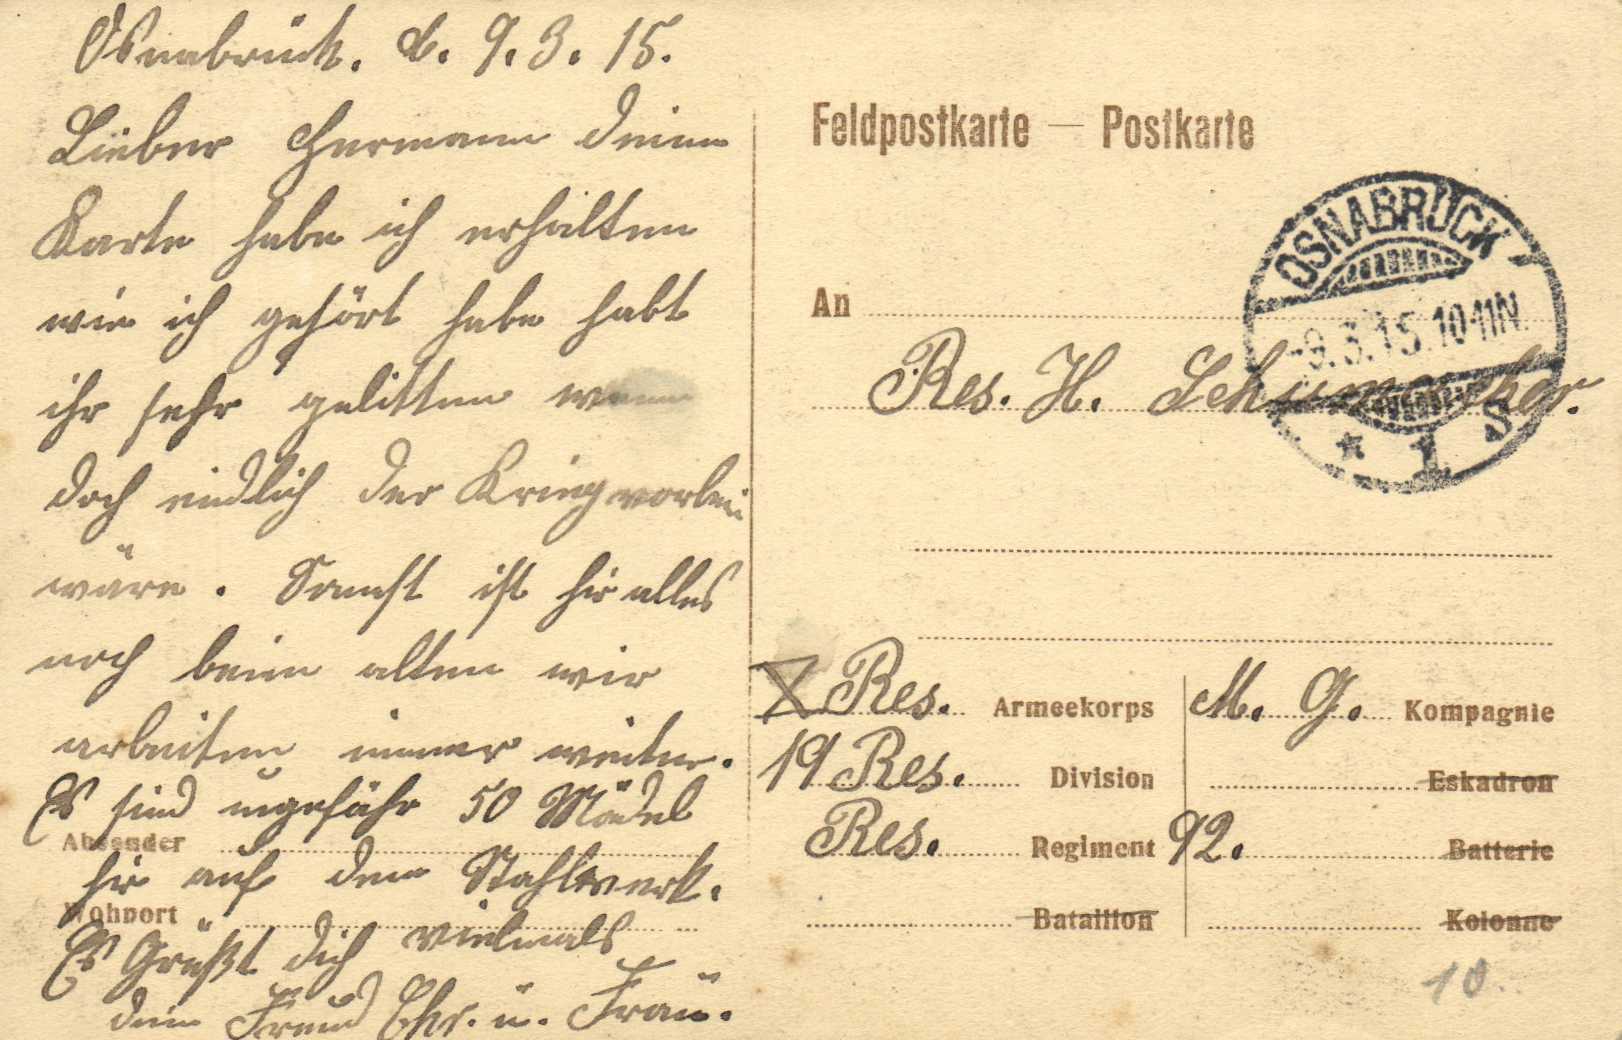 Osnabrück. d. 9. 3. 15.
Lieber Hermann deine
Karte habe ich erhalten
wie ich gehört habe habt
ihr sehr gelitten wenn
doch endlich der Krieg vorbei
wäre. Sonst ist hir alles
noch beim alten wir
arbeiten immer weiter.
Es sind ungefähr 50 Mädel
hir auf dem Stahlwerk.
Es Grüßt dich vielmals
dein Freund Chr. u. Frau.
Absender
Wohnort
Feldpostkarte — Postkarte
OSNABRÜCK
-9.3.15.10-11N.
* 1 S
An
Res. H. Schumacher.
X Res. Armeekorps
19 Res. Division
Res. Regiment 92.
Bataillon
M. G. Kompagnie
Eskadron
Batterie
Kolonne
10.